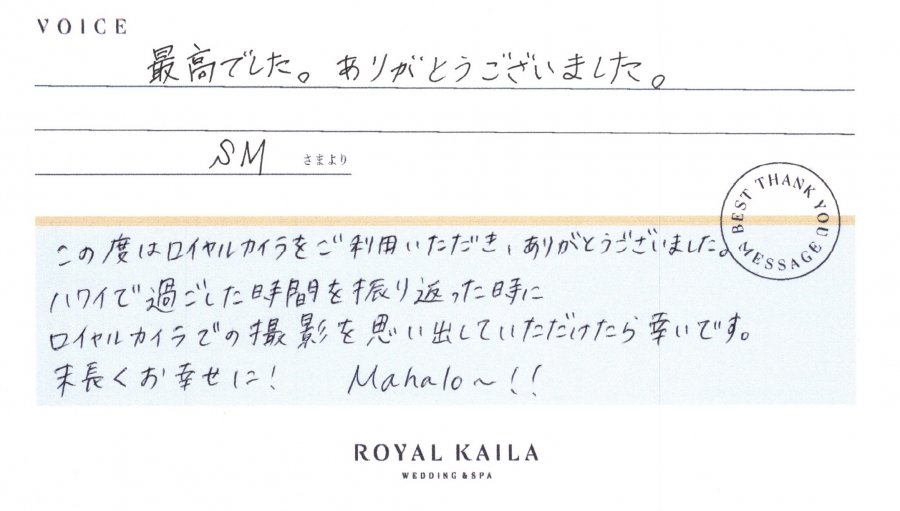 VOICE
最高でした。ありがとうございました。
SM さまより
BEST THANK YOU MESSAGE
この度はロイヤルカイラをご利用いただき、ありがとうございました。
ハワイで過ごした時間を振り返った時に
ロイヤルカイラでの撮影を思い出していただけたら幸いです。
末長くお幸せに! Mahalo～!!
ROYAL KAILA
WEDDING & SPA